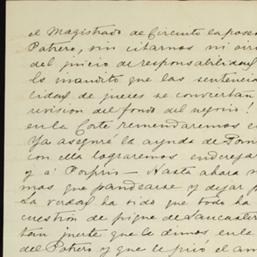 el Magistrado de Circuito la posee
Potrero, sin citarnos ni oir
del juicio de responsabilidad
lo inaudito que las sentencia
lidad de jueces se conviertan
revision del fondo del negocio!
en la Corte remendaremos
Ya aseguré la ayuda de Don
con ella lograremos enderezar
y á Porfirio — Hasta ahora n
mas que pandearse y dejar p
La verdad ha sido que todo ha
cuestion de pique de Lancaster
tan inerte que le dimos en la
del Potrero y que le picó el am